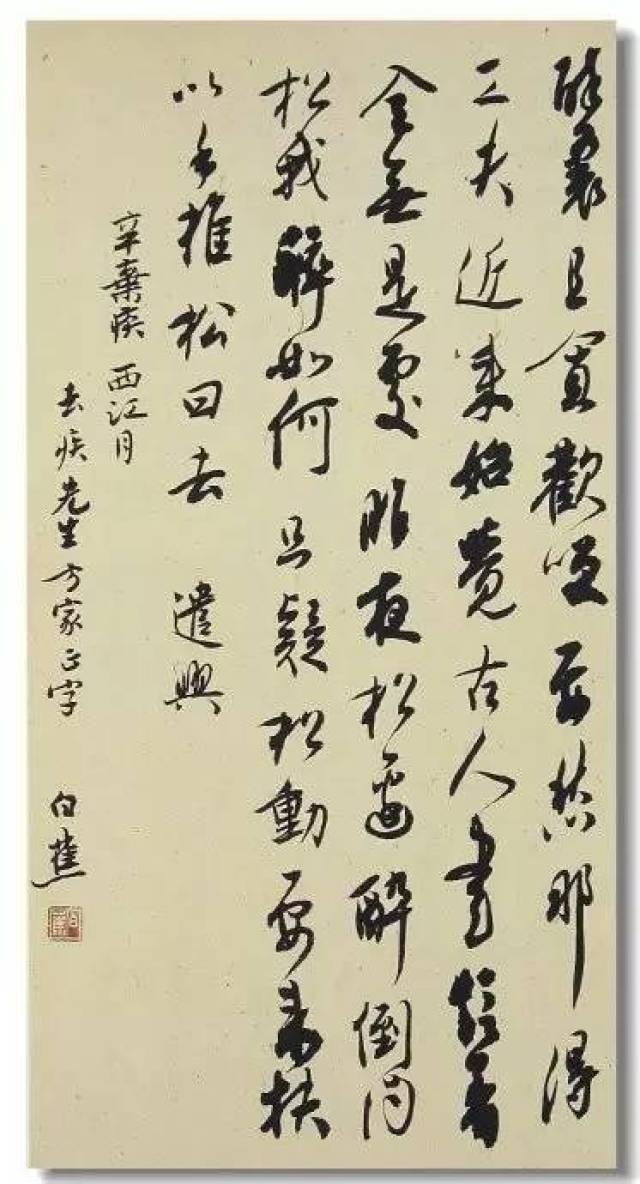 醉裏且貪歡咲要愁那得
工夫近來始覺古人書信著
全無是處昨夜松邊醉倒問
松我醉如何只疑松動要來扶
以手推松曰去 遣興
辛棄疾 西江月
去疾先生方家正字 白蕉